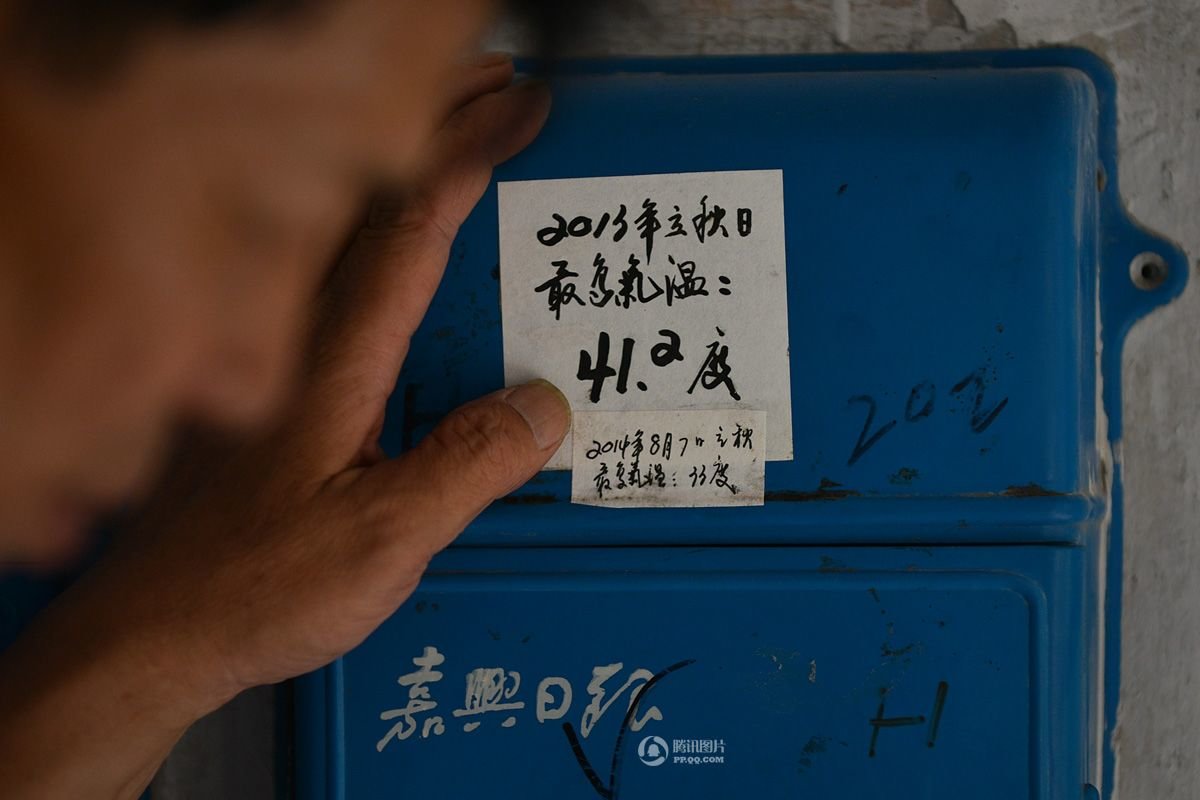 2013年立秋日
最高氣温：
41.2度
2014年8月7日立秋
最高氣温：33度
202
嘉興日报
H
腾讯图片
PP.QQ.COM